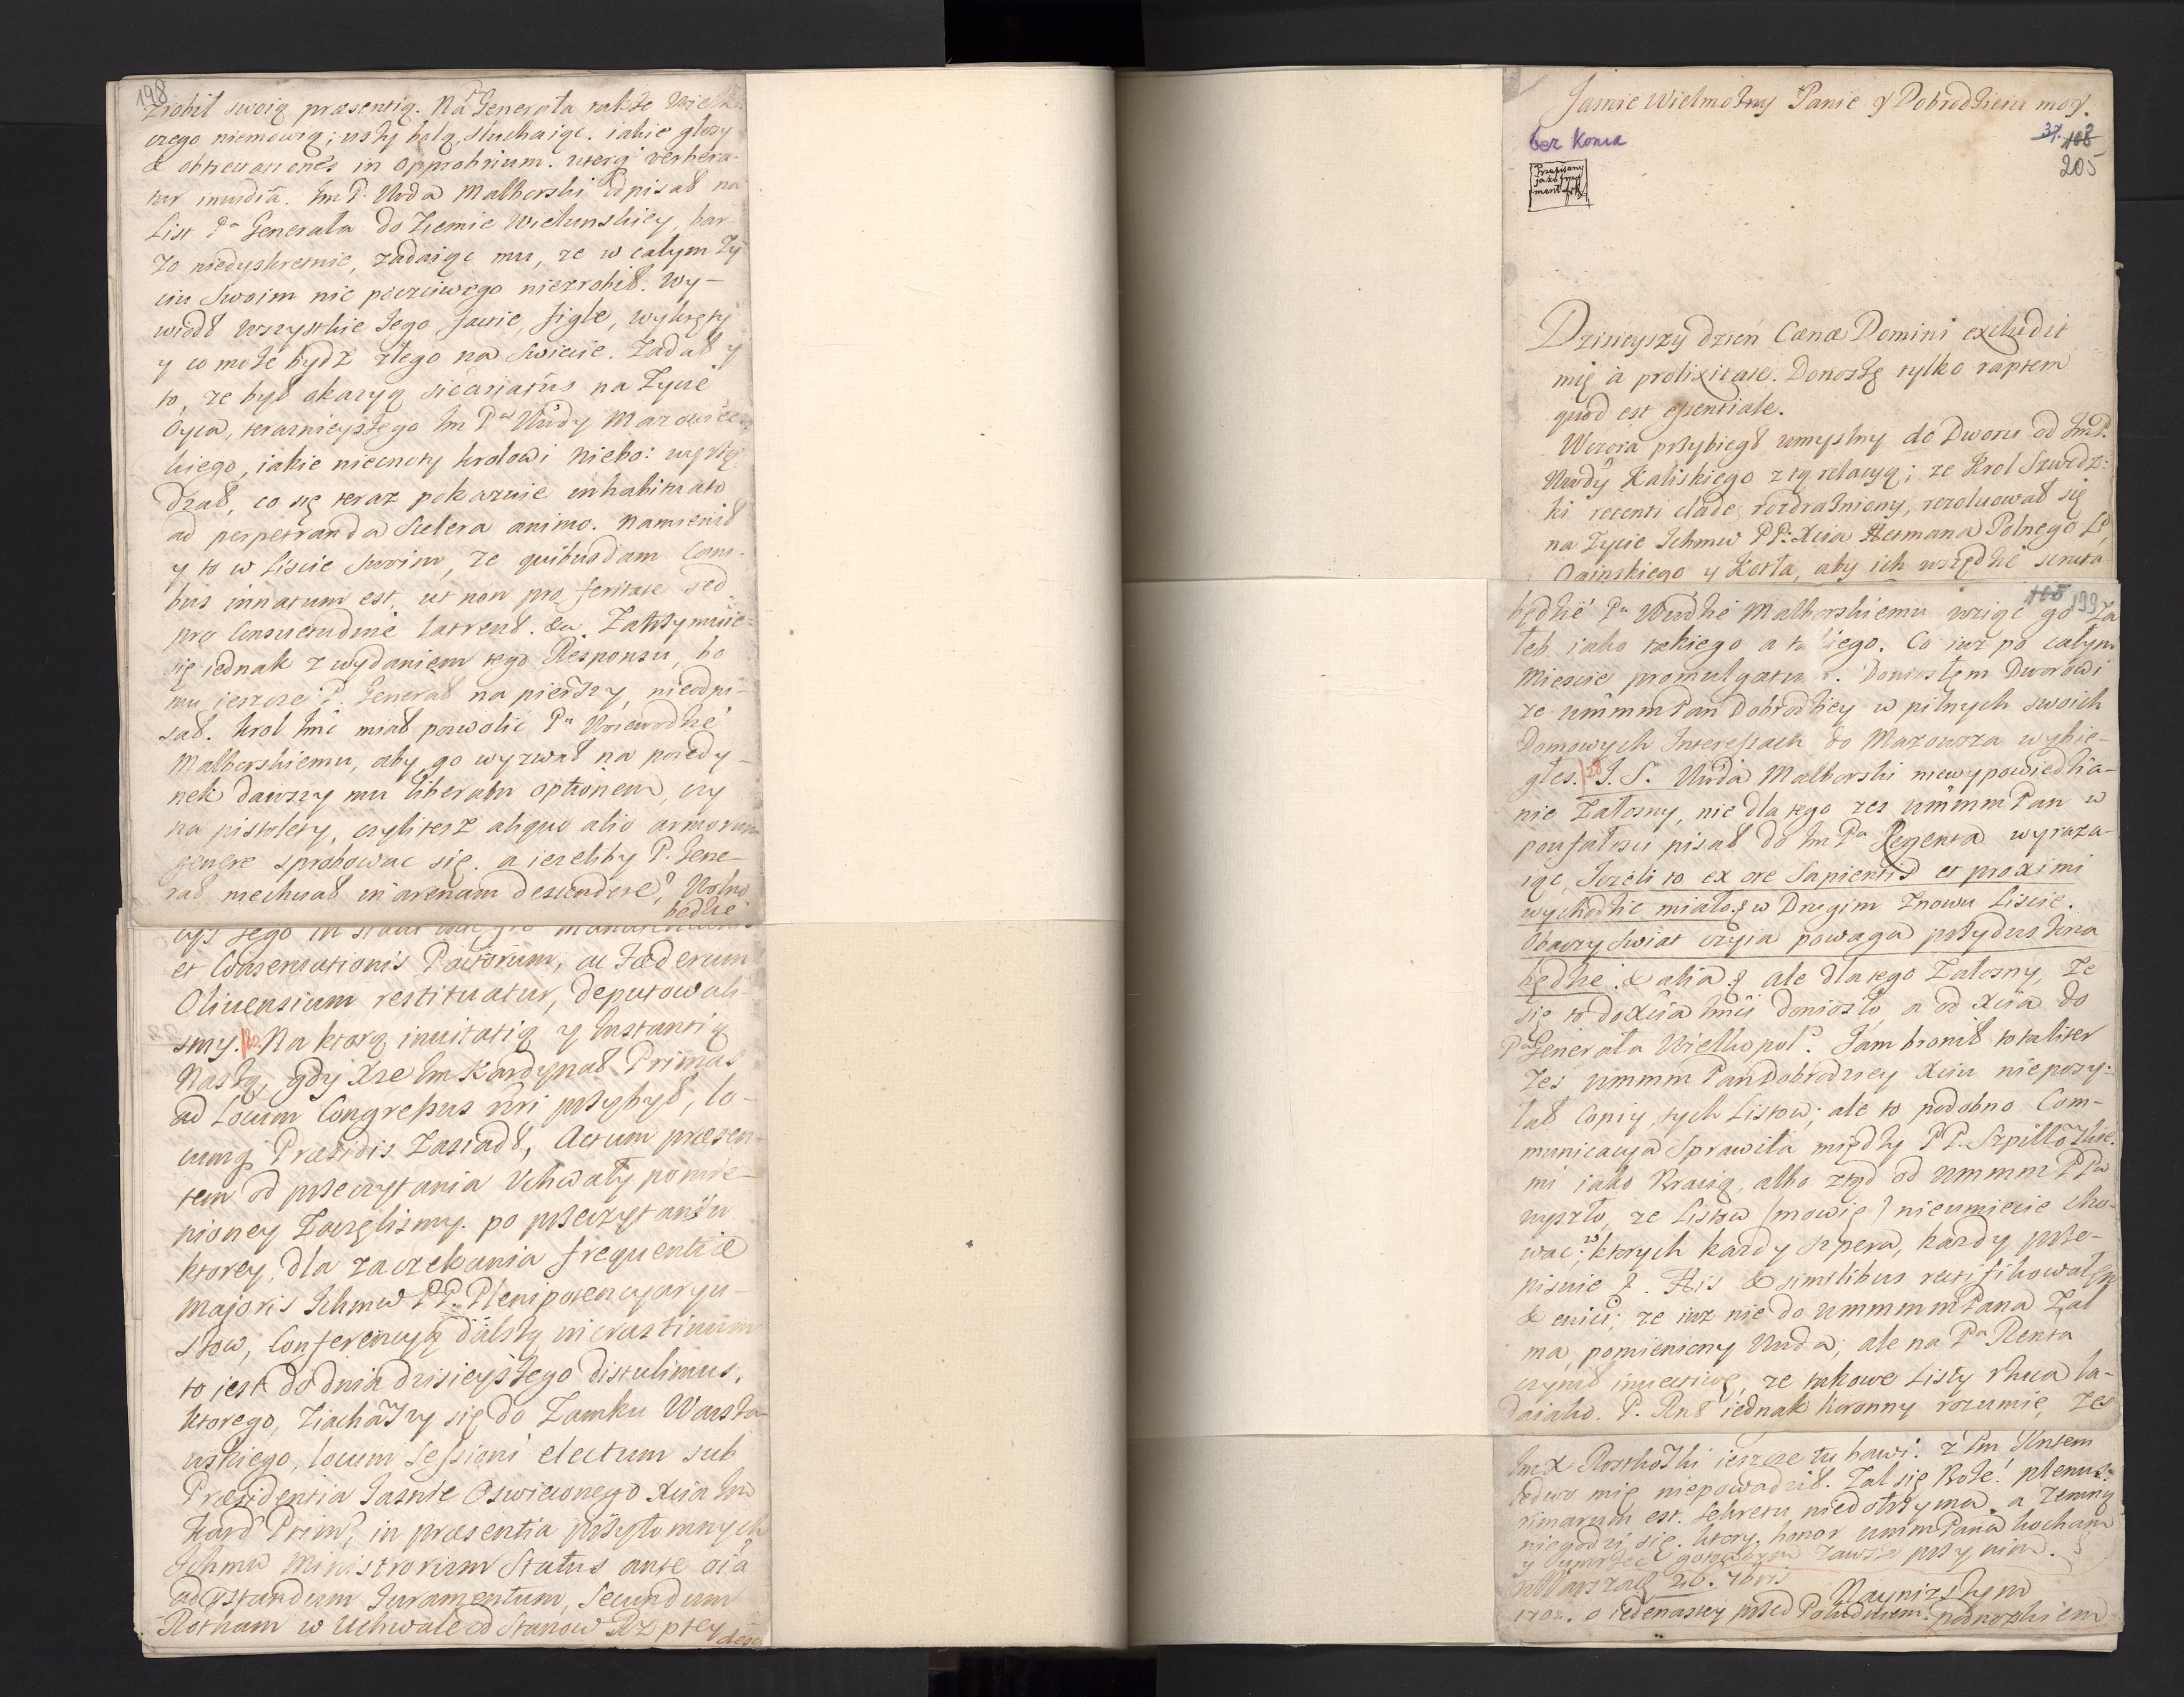 198
zrobił swoią praesentią. Na P. Generała także Wielk.
czego niemowią; uszy bolą, słuchaiąc. iakie głosy
& obtrectationes in opprobrium. uterq verbera-
tur invidiâ. Im P. Wda Malborski odpisał na
List Pa Generała do Ziemie Wielunskiey, bar-
zo niedyskretnie, zadaiąc mu, ze w całym Zy-
ciu Swoim nic poczciwego niezrobił. Wy-
wiodł wszystkie Jego facie, figle, wykręty
y co może bydź złego na swiecie. Zadał y
to, ze był okazyą sicariatûs na Zycie
Oyca, teraznieyszego Im Pa Wdy Mazowiec-
kiego, iakie niecnoty krolowi niebo: wyrzą-
dzał, co się teraz pokazuie inhabituato
ad perpetranda Scelera animo. Namienił
y to w Liscie swoim, ze quibusdam Cani-
bus innatum est, ut non pro feritate sed
pro Consuetudine latrent. &c. Zatrzymuie
się iednak z wydaniem tego Responsu, bo
mu ieszcze P. Generał na pierszy, nieodpi-
sał. Krol Imć miał pozwolic Pu Woiewodzie
Malborskiemu, aby go wyzwał na poiedy-
nek dawszy mu liberam optionem, czy
na pistolety, czyliteż aliquo alio armorum
genere sprobowac się. a iezeliby P. Gene-
rał niechciał in arenam descendere, Wolno
będzie
et Conservationis Pactorum, ac Fæderum
Olivensium restituatur, deputowali-
smy. Na ktorą invitatią y Instantią
Naszą, gdy Xże Im Kardynał Primas
ad Locum Congressus nri przybył, lo-
cumq Præsidis Zasiadł, Actum præsen-
tem od przeczytania Uchwały pomie-
nioney Zaczęlismy. po przeczytaniu
ktorey, dla zaczekania frequentiæ
majoris Ichmw PP. Plenipotencyaryu-
szow, Conferencyą dalszą in crastinum
to iest do dnia dzisieyszego distulimus,
ktorego, Ziachawszy się do Zamku Warsza-
wskiego, locum Sessioni electum sub
Præsidentia Jasnie Oswieconego Xcia Im
Kard Prim, in præsentia przytomnych
Ichmw Ministrorum Status ante oia
ad præstandum Juramentum, Secundum
Rotham w Uchwale od Stanow Rzptey
Jasnie Wielmożny Panie y Dobrodzieiu moy.
bez konca
37. 108
205
Przepisany
jako frag
ment
Dzisieyszy dzien Cænæ Domini excludit
mię a prolixitate. Donoszę tylko raptem
quod est essentiale.
Wczora przybiegł umyslny do Dworu od Im P.
Wdy Kaliskiego z tą relacyą; ze Krol Szwedz-
ki recenti clade rozdrażniony, rezolwował się
na Zycie Ichmw PP: Xcia Hetmana Polnego Lt,
Oginskiego y Kotła, aby ich wszędzie scruta
108 199
będzie Pu Wdzie Malborskiemu wziąć go Za
łeb iako takiego a takiego. Co iuz po całym
Miescie promulgatum. Doniosłem Dworowi
ze Ummm Pan Dobrodziey w pilnych swoich
Domowych Interessach do Mazowsza wybie-
głes. J. S. Wda Malborski niewypowiedzia-
nie Załosny, nie dla tego zes Ummm Pan w
poufałosci pisał do Im Pa Regenta wyraza-
iąc, Jezeli to ex ore Sapientis et proximi
wychodzic miało. & w Drugim Znowu Liscie.
Obaczy Swiat czyia powaga przyduszona
będzie. & alia. & ale dlatego Załosny, Ze
się to do Xcia Imci doniosło, a od Xcia do
Pa Generała Wielkopol. Jam bronił totaliter
Zes Ummm Pan Dobrodziey Xciu nieposy-
łał Copiy, tych Listow; ale to podobno Com-
municacya Sprawiła między PP. Szpillowskie-
mi iako Bracią, albo ztąd od Ummm PPa
wyszło, ze Listow (mowię) nieumiecie cho-
wać; ktorych kazdy szpera, kazdy prze-
pisuie &. His & similibus rectifikowałem
& evici; ze iuz nie do Ummmm Pana Zal
ma, pomieniony Wda; ale na Pa Renta
czynił invectivę, ze takowe Listy rzuca la-
daiako. P. Rnt iednak koronny rozumie, Zes
Im X Rostkowski ieszcze tu bawi. z Im Knsem
ledwo mię niepowadził. Zal się Boże! plenus
rimarum est. Sekretu niedotrzyma. a Zemną
niegodzi się. ktory honor Ummm Pana kocham
y umrzeć gotowym Zawsze przy nim.
w Warszaw 26. 7bris
1702. o iedenastey przed Południem. Naynizszym
podnozkiem